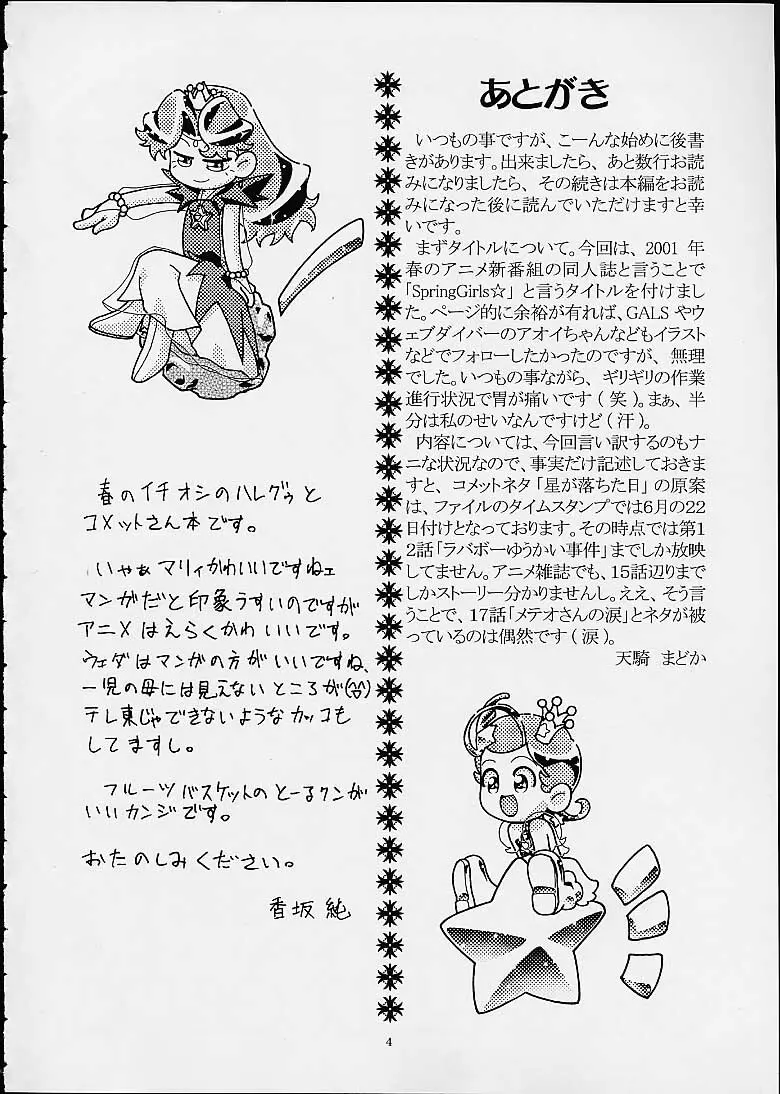 あとがき
いつもの事ですが、こーんな始めに後書
きがあります。出来ましたら、あと数行お読
みになりましたら、その続きは本編をお読
みになった後に読んでいただけますと幸
いです。
まずタイトルについて。今回は、2001 年
春のアニメ新番組の同人誌と言うことで
「SpringGirls☆」と言うタイトルを付けまし
た。ページ的に余裕が有れば、GALS やウ
ェブダイバーのアオイちゃんなどもイラスト
などでフォローしたかったのですが、無理
でした。いつもの事ながら、ギリギリの作業
進行状況で胃が痛いです(笑)。まぁ、半
分は私のせいなんですけど(汗)。
内容については、今回言い訳するのもナ
ニな状況なので、事実だけ記述しておきま
すと、コメットネタ「星が落ちた日」の原案
は、ファイルのタイムスタンプでは6月の22
日付けとなっております。その時点では第1
2話「ラバボーゆうかい事件」までしか放映
してません。アニメ雑誌でも、15話辺りまで
しかストーリー分かりませんし。ええ、そう言
うことで、17話「メテオさんの涙」とネタが被
っているのは偶然です(涙)。
天騎 まどか
春のイチオシのハレグゥと
コメットさん本です。
いやぁマリィかわいいですねェ
マンガだと印象うすいのですが
アニメはえらくかわいいです。
ウェダはマンガの方がいいですね、
一児の母には見えないところが
テレ東じゃできないようなカッコも
してますし。
フルーツバスケットのとーるクンが
いいカンジです。
おたのしみください。
香坂 純
4